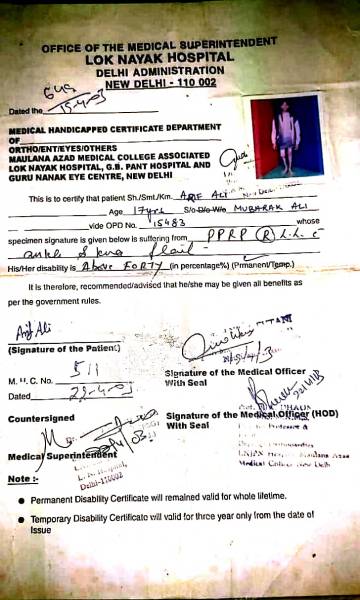 OFFICE OF THE MEDICAL SUPERINTENDENT
LOK NAYAK HOSPITAL
DELHI ADMINISTRATION
NEW DELHI - 110 002
Dated the
MEDICAL HANDICAPPED CERTIFICATE DEPARTMENT
OF
ORTHO/ENT/EYES/OTHERS
MAULANA AZAD MEDICAL COLLEGE ASSOCIATED
LOK NAYAK HOSPITAL, G.B. PANT HOSPITAL AND
GURU NANAK EYE CENTRE, NEW DELHI
This is to certify that patient Sh./Smt./Km. ARIF ALI
Age 17yrs S/o D/o W/o MUBARAK ALI
vide OPD No. 15483 whose
specimen signature is given below is suffering from PPRP (R) L.L. c
His/Her disability is Above FORTY (in percentage%) (Prmanent/Temp.)
It is therefore, recommended/advised that he/she may be given all benefits as
per the government rules.
Arif Ali
(Signature of the Patient)
Signature of the Medical Officer
With Seal
M. H. C. No. 511
Dated
Countersigned
Signature of the Medical Officer (HOD)
With Seal
Medical Superintendent
Delhi-110002
Medical College New Delhi
Note :-
Permanent Disability Certificate will remained valid for whole lifetime.
Temporary Disability Certificate will valid for three year only from the date of
Issue